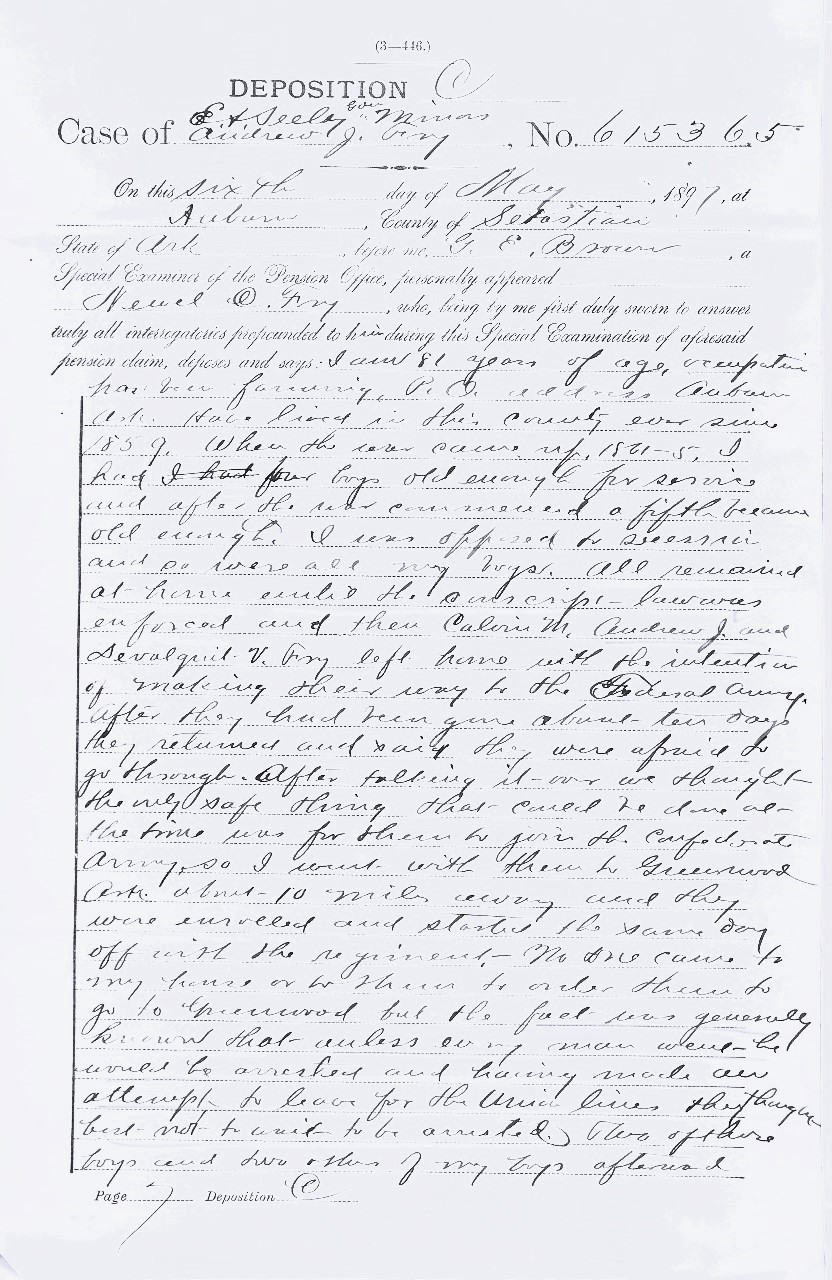 (3—446.)
DEPOSITION C
E A Seeley Gdn Minors
Case of Andrew J. Fry, No. 615365
On this sixth day of May, 1897, at
Auburn, County of Sebastian
State of Ark, before me, G. E. Brown, a
Special Examiner of the Pension Office, personally appeared
Newel O. Fry, who, being by me first duly sworn to answer
truly all interrogatories propounded to him during this Special Examination of aforesaid
pension claim, deposes and says: I am 81 years of age, occupation
has been farming, P.O. address Auburn
Ark. Have lived in this county ever since
1859. When the war came up, 1861-5, I
had I had four boys old enough for service
and after the war commenced a fifth became
old enough. I was opposed to secession
and so were all my boys. All remained
at home until the conscript law was
enforced and then Calvin M. Andrew J. and
V. Fry left home with the intention
of making their way to the Federal Army.
After they had been gone about ten days
they returned and said they were afraid to
go through. After talking it over we thought
the only safe thing that could be done at
the time was for them to join the Confederate
Army, so I went with them to Greenwood
Ark. about 10 miles away and they
were enrolled and started the same day
off with the regiment. No one came to
my house or to them to order them to
go to Greenwood but the fact was generally
known that unless every man went he
would be arrested and having made an
attempt to leave for the Union lines they thought
best not to wait to be arrested.) Two of those
boys and two others of my boys afterward
Page 7 Deposition C